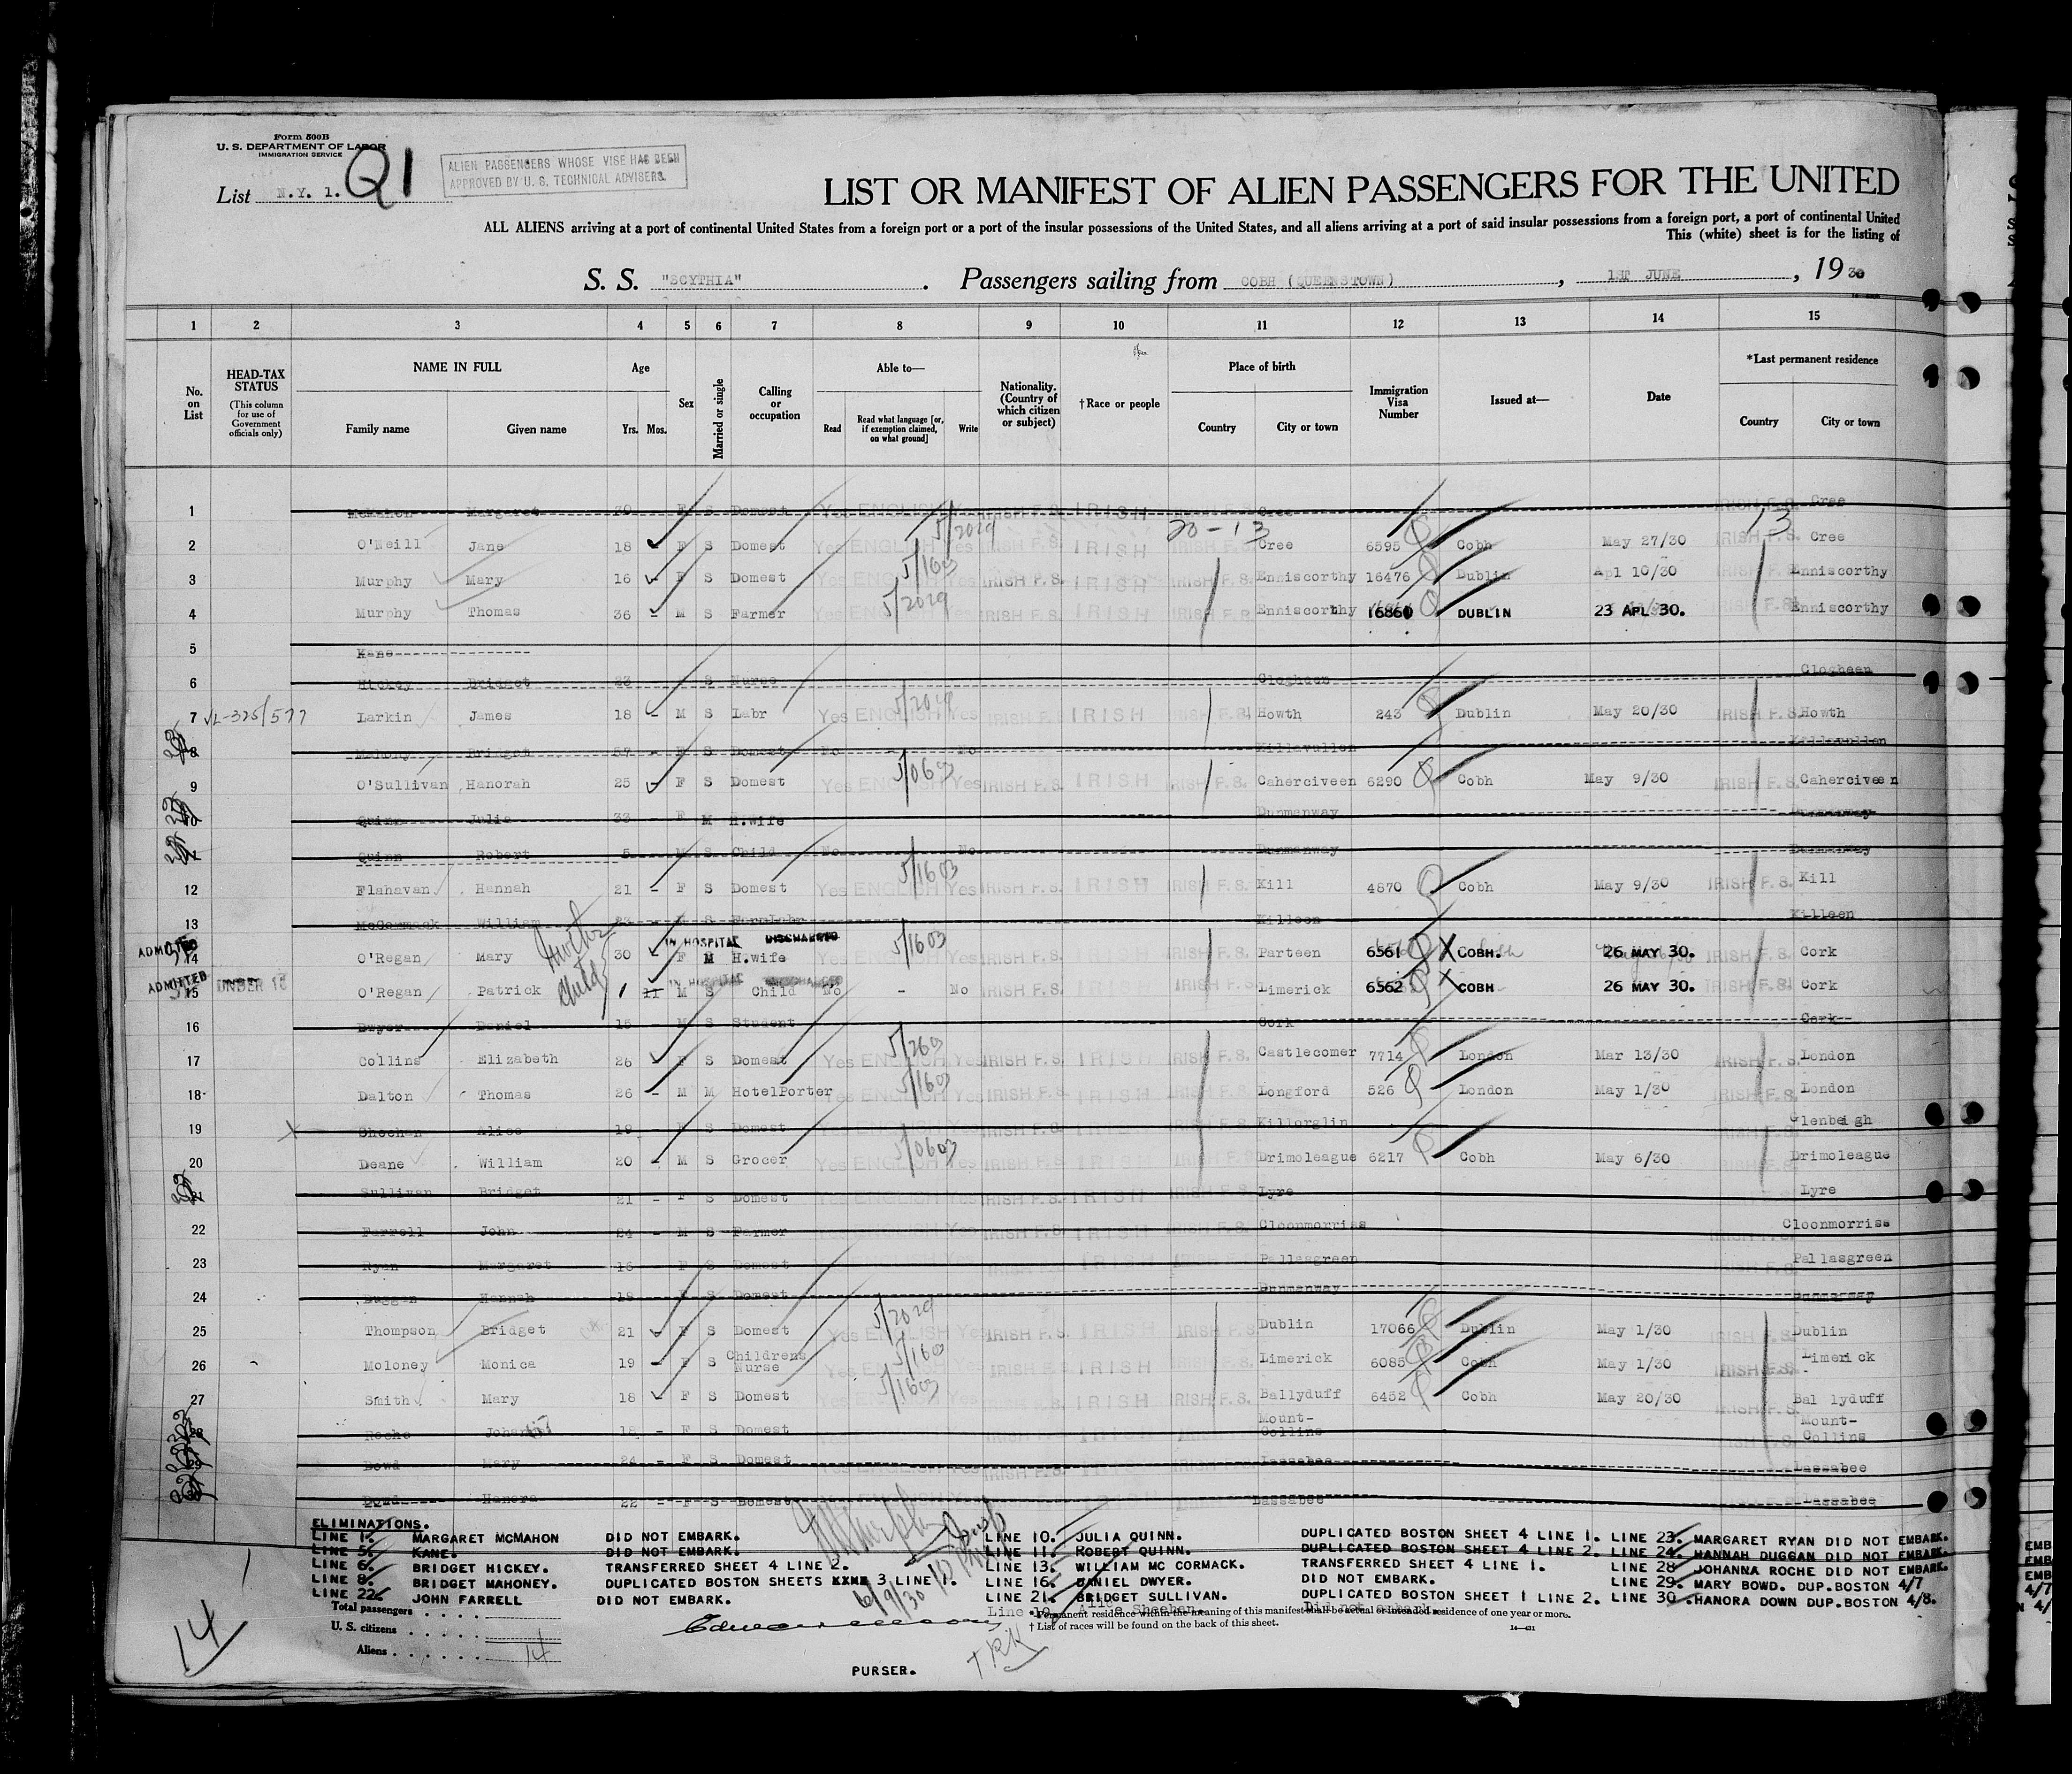 Form 500B
U. S. DEPARTMENT OF LABOR
IMMIGRATION SERVICE
List N.Y. 1. Q1
ALIEN PASSENGERS WHOSE VISE HAS BEEN
APPROVED BY U. S. TECHNICAL ADVISERS.
LIST OR MANIFEST OF ALIEN PASSENGERS FOR THE UNITED
ALL ALIENS arriving at a port of continental United States from a foreign port or a port of the insular possessions of the United States, and all aliens arriving at a port of said insular possessions from a foreign port, a port of continental United
This (white) sheet is for the listing of
S. S. "SCYTHIA" . Passengers sailing from COBH (QUEENSTOWN) , 1ST JUNE , 19 30
1 2 3 4 5 6 7 8 9 10 11 12 13 14 15
No. on List
HEAD-TAX STATUS (This column for use of Government officials only)
NAME IN FULL
Family name Given name
Age
Yrs. Mos.
Sex
Married or single
Calling or occupation
Able to—
Read Read what language [or, if exemption claimed, on what ground] Write
Nationality. (Country of which citizen or subject)
†Race or people
Place of birth
Country City or town
Immigration Visa Number
Issued at—
Date
*Last permanent residence
Country City or town
1 McMahon Margaret 20 F S Domest Yes ENGLISH Yes IRISH F.S. IRISH IRISH F.S. Cree IRISH F.S. Cree
5/2029 20-13 13
2 O'Neill Jane 18 - F S Domest Yes ENGLISH Yes IRISH F.S. IRISH IRISH F.S. Cree 6595 Cobh May 27/30 IRISH F.S. Cree
5/1603
3 Murphy Mary 16 - F S Domest Yes ENGLISH Yes IRISH F.S. IRISH IRISH F.S. Enniscorthy 16476 Dublin Apl 10/30 Enniscorthy
5/2029
4 Murphy Thomas 36 - M S Farmer Yes ENGLISH Yes IRISH F.S. IRISH IRISH F.S. Enniscorthy 16860 DUBLIN 23 APL 30. Enniscorthy
5 Kane
6 Hickey Bridget 23 S Nurse Clogheen Clogheen
5/2029
7 Larkin James 18 - M S Labr Yes ENGLISH Yes IRISH F.S. IRISH IRISH F.S. Howth 243 Dublin May 20/30 IRISH F.S. Howth
8 Mahony Bridget 37 - F S Domest No - No Killavullen Killavullen
5/0603
9 O'Sullivan Hanorah 25 - F S Domest Yes ENGLISH Yes IRISH F.S. IRISH IRISH F.S. Caherciveen 6290 Cobh May 9/30 IRISH F.S. Caherciveen
10 Quinn Julia 33 F M H.wife Dunmanway Dunmanway
11 Quinn Robert 5 M S Child No No Dunmanway Dunmanway
5/1603
12 Flahavan Hannah 21 - F S Domest Yes ENGLISH Yes IRISH F.S. IRISH IRISH F.S. Kill 4870 Cobh May 9/30 IRISH F.S. Kill
13 McCormack William 23 M S FarmLabr Killeen Killeen
IN HOSPITAL DISCHARGED 5/1603
ADMITTED 14 O'Regan Mary 30 F M H.wife Yes ENGLISH Yes IRISH F.S. IRISH IRISH F.S. Parteen 6561 X COBH. 26 MAY 30. IRISH F.S. Cork
Mother
Child
IN HOSPITAL DISCHARGED
ADMITTED 15 UNDER 16 O'Regan Patrick 1 11 M S Child No - No IRISH F.S. IRISH IRISH F.S. Limerick 6562 X COBH 26 MAY 30. IRISH F.S. Cork
16 Dwyer Daniel 15 M S Student Cork Cork
5/2603
17 Collins Elizabeth 26 - F S Domest Yes ENGLISH Yes IRISH F.S. IRISH IRISH F.S. Castlecomer 7714 London Mar 13/30 IRISH F.S. London
5/1603
18 Dalton Thomas 26 - M M HotelPorter Yes ENGLISH Yes IRISH F.S. IRISH IRISH F.S. Longford 526 London May 1/30 IRISH F.S. London
19 Sheehan Alice 19 F S Domest IRISH F.S. Killorglin Glenbeigh
5/0603
20 Deane William 20 - M S Grocer Yes ENGLISH Yes IRISH F.S. IRISH IRISH F.S. Drimoleague 6217 Cobh May 6/30 IRISH F.S. Drimoleague
21 Sullivan Bridget 21 - F S Domest Yes ENGLISH Yes IRISH F.S. IRISH IRISH F.S. Lyre Lyre
22 Farrell John 24 - M S Farmer Yes ENGLISH Yes IRISH F.S. IRISH IRISH F.S. Cloonmorriss Cloonmorriss
23 Ryan Margaret 16 F S Domest Pallasgreen Pallasgreen
24 Duggan Hannah 18 F S Domest Dunmanway Dunmanway
5/2029
25 Thompson Bridget 21 - F S Domest Yes ENGLISH Yes IRISH F.S. IRISH IRISH F.S. Dublin 17066 Dublin May 1/30 IRISH F.S. Dublin
26 Moloney Monica 19 - F S Childrens Nurse Yes ENGLISH Yes IRISH F.S. IRISH IRISH F.S. Limerick 6085 Cobh May 1/30 IRISH F.S. Limerick
5/1603
27 Smith Mary 18 - F S Domest Yes ENGLISH Yes IRISH F.S. IRISH IRISH F.S. Ballyduff 6452 Cobh May 20/30 IRISH F.S. Ballyduff
28 Roche Johanna 18 - F S Domest Mount-Collins Mount-Collins
29 Dowd Mary 24 - F S Domest Lassabee Lassabee
30 Dowd Hanora 22 - F S Domest Lassabee Lassabee
ELIMINATIONS.
LINE 1. MARGARET MCMAHON DID NOT EMBARK. LINE 10. JULIA QUINN. DUPLICATED BOSTON SHEET 4 LINE 1. LINE 23. MARGARET RYAN DID NOT EMBARK.
LINE 5. KANE. DID NOT EMBARK. LINE 11. ROBERT QUINN. DUPLICATED BOSTON SHEET 4 LINE 2. LINE 24. HANNAH DUGGAN DID NOT EMBARK.
LINE 6. BRIDGET HICKEY. TRANSFERRED SHEET 4 LINE 2. LINE 13. WILLIAM MC CORMACK. TRANSFERRED SHEET 4 LINE 1. LINE 28 JOHANNA ROCHE DID NOT EMBARK.
LINE 8. BRIDGET MAHONEY. DUPLICATED BOSTON SHEETS 3 LINE 1. LINE 16. DANIEL DWYER. DID NOT EMBARK. LINE 29. MARY BOWD. DUP.BOSTON 4/7
LINE 22. JOHN FARRELL DID NOT EMBARK. LINE 21. BRIDGET SULLIVAN. DUPLICATED BOSTON SHEET 1 LINE 2. LINE 30 .HANORA DOWN DUP.BOSTON 4/8.
Line 19. Alice Sheehan. Did not embark.
6/9/30
Total passengers
U. S. citizens
Aliens 14
14
* Permanent residence within the meaning of this manifest shall be actual or intended residence of one year or more.
† List of races will be found on the back of this sheet.
PURSER.